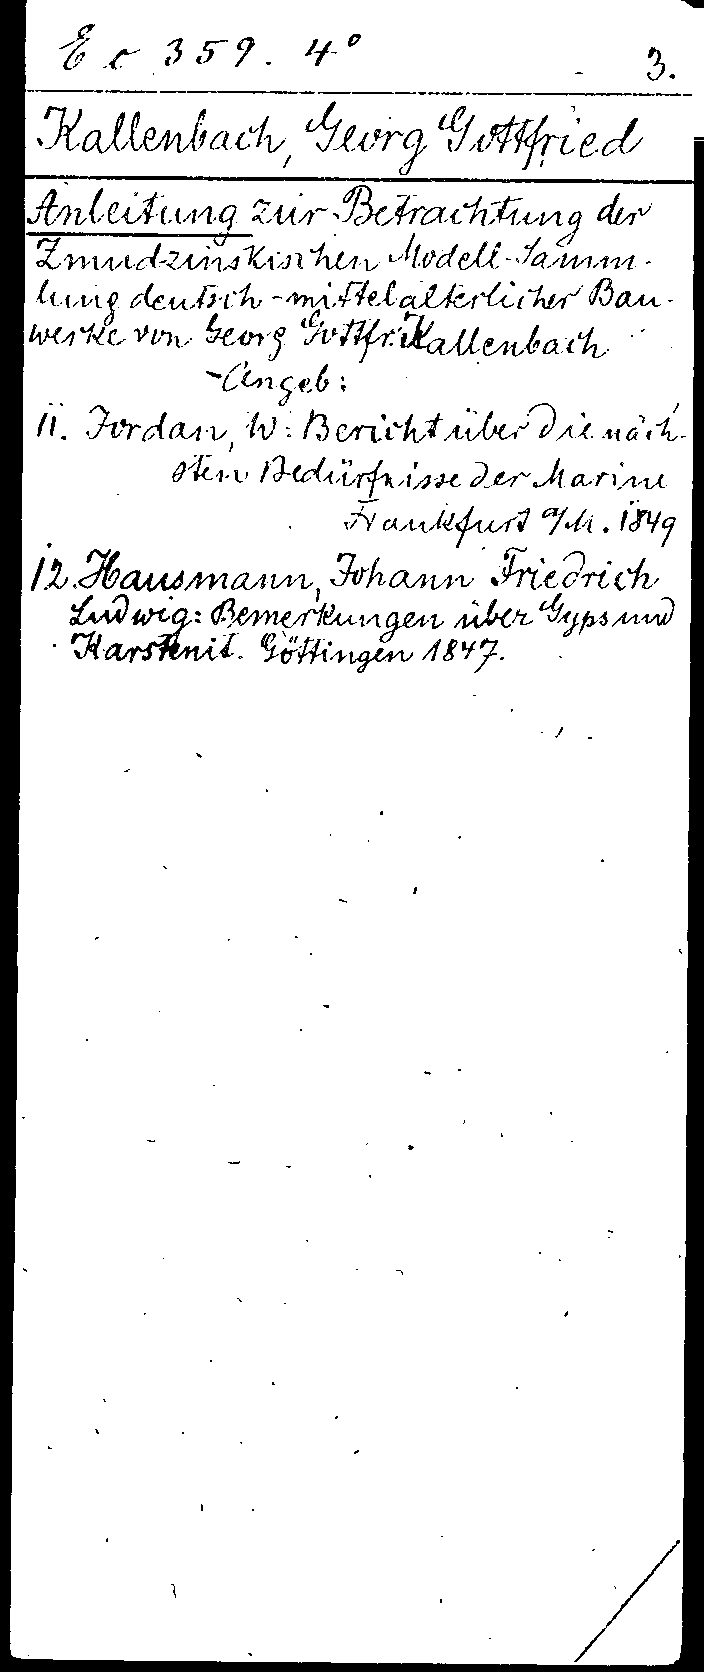 Ec 359. 4° 3.
Kallenbach, Georg Gottfried
Anleitung zur Betrachtung der
Zmudzinskischen Modell-Samm-
lung deutsch-mittelalterlicher Bau-
werke von Georg Gottfr. Kallenbach
-Angeb:
11. Jordan, W: Bericht über die näch-
sten Bedürfnisse der Marine
Frankfurt a/M. 1849
12. Hausmann, Johann Friedrich
Ludwig: Bemerkungen über Gyps und
Karstenit. Göttingen 1847.